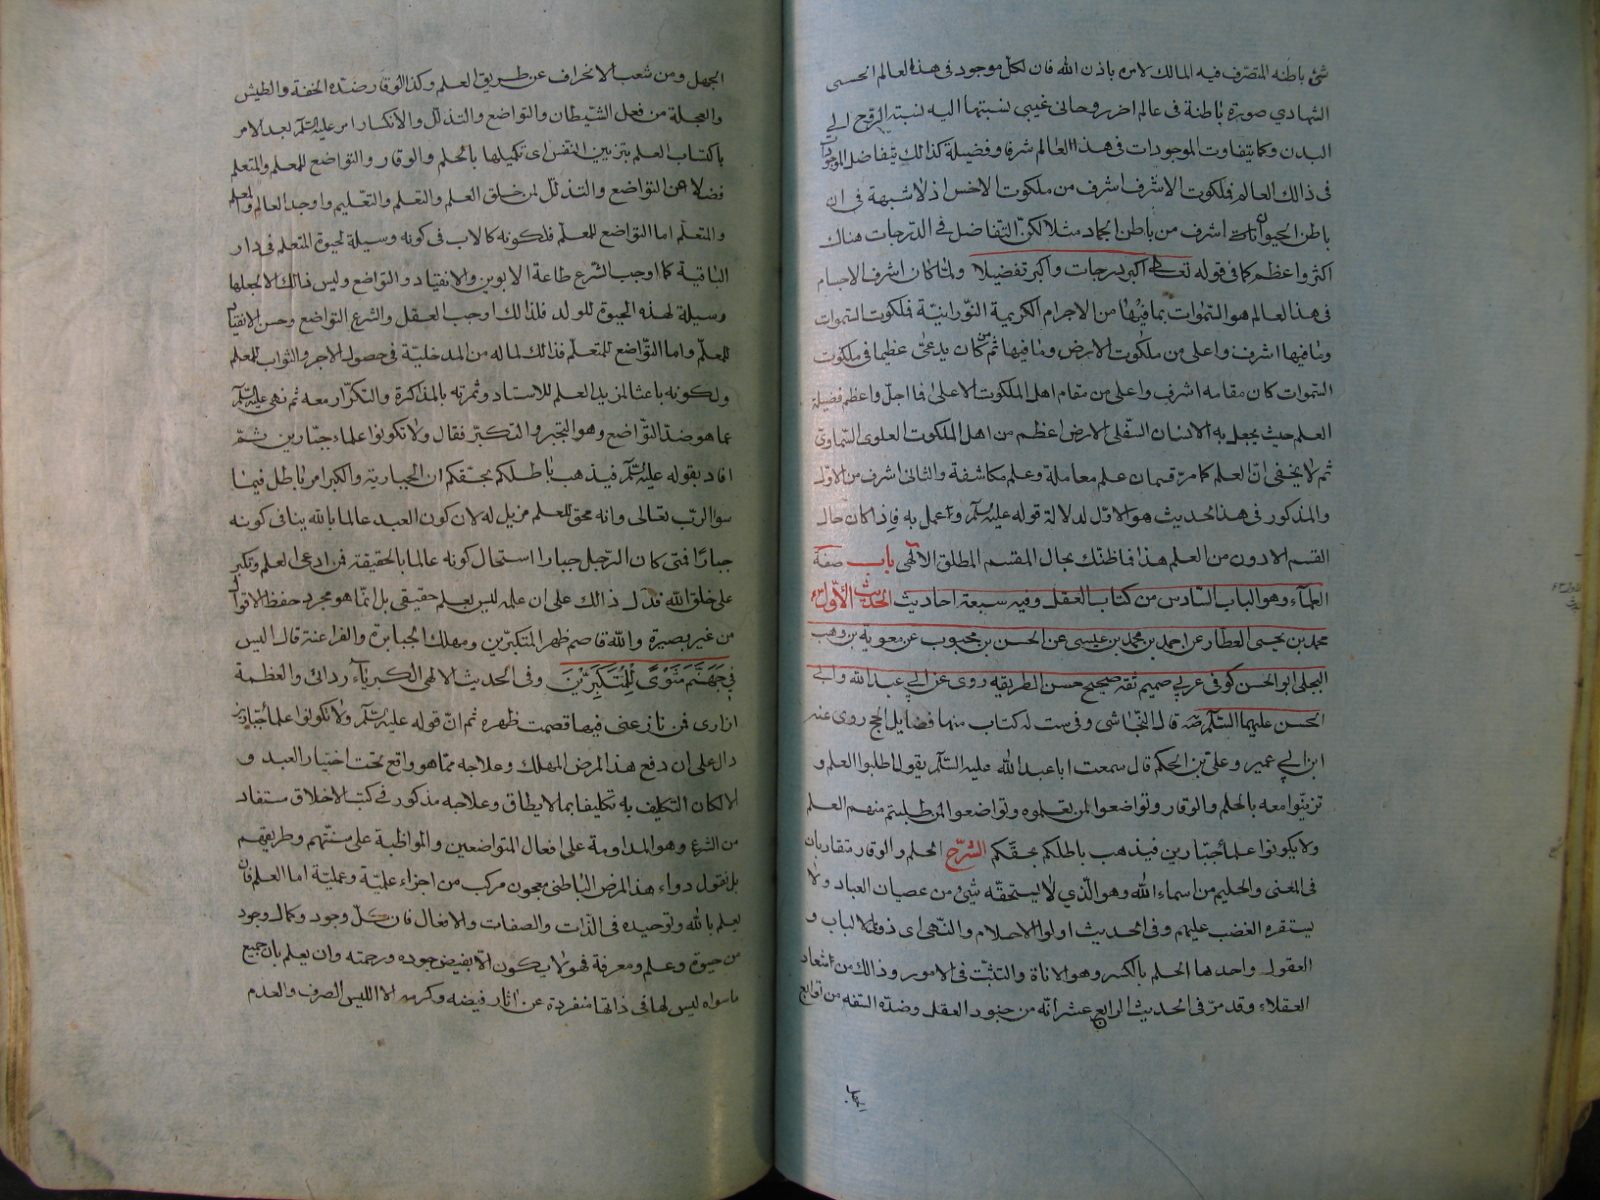 شئ باطنه المتصرف فيه المالك لامره باذن الله فان لكل موجود فى هذا العالم الحسى
الشهادي صورة باطنة فى عالم اخر روحانى غيبى نسبتها اليه نسبة الروح الى
البدن وكما يتفاوت الموجودات فى هذا العالم شرفا وفضيلة كذالك يتفاضل الموجودات
فى ذالك العالم فملكوت الاشرف اشرف من ملكوت الاخس اذ لا شبهة فى ان
باطن الحيوانات اشرف من باطن الجماد مثلا لكن التفاضل فى الدرجات هناك
اكثر واعظم كما فى قوله تعالى اكبر درجات واكبر تفضيلا ولما كان اشرف الاجسام
فى هذا العالم هو السموات بما فيها من الاجرام الكريمة النورانية فملكوت السموات
وما فيها اشرف واعلى من ملكوت الارض وما فيها ثم من كان يدعى عظيما فى ملكوت
السموات كان مقامه اشرف واعلى من مقام اهل الملكوت الاعلى فما اجل واعظم فضيلة
العلم حيث يجعل به الانسان السفلى الارض اعظم من اهل الملكوت العلوى السماوى
ثم لا يخفى ان العلم كما مر قسمان علم معاملة وعلم مكاشفة والثانى اشرف من الاول
والمذكور فى هذا الحديث هو الاول لدلالة قوله عليه السلام وعمل به فاذا كان حال
القسم الادون من العلم هذا فما ظنك بحال المقسم المطلق الالهى باب صفة
العلمآء وهو الباب السادس من كتاب العقل وفيه سبعة احاديث الحديث الاول
محمد بن يحيى العطار عن احمد بن محمد بن عيسى عن الحسن بن محبوب عن معوية بن وهب
البجلى ابو الحسن كوفى عربي صميم ثقه صحيح حسن الطريقه روى عن ابي عبد الله وابي
الحسن عليهما السلام صه قال النجاشى وفى ست له كتاب منها فضايل الحج روى عنه
ابن ابي عمير وعلى بن الحكم قال سمعت ابا عبد الله عليه السلام يقول اطلبوا العلم و
تزينوا معه بالحلم والوقار وتواضعوا لمن تعلموه وتواضعوا لمن طلبتم منهم العلم
ولا يكونوا علمآء جبارين فيذهب باطلكم بحقكم الشرح الحلم والوقار متقاربان
فى المعنى والحليم من اسماء الله وهو الذي لا يستحقه شئ من عصيان العباد ولا
يستقره الغضب عليهم وفى الحديث اولوا الاحلام والنهى اى ذووا الالباب و
العقول واحدها الحلم بالكسر وهو الاناة والتثبت فى الامور وذالك من اشعار
العقلاء وقد مر فى الحديث الرابع عشر انه من جنود العقل وضده السفه من توابع
الجهل
الجهل ومن شعب الانحراف عن طريق العلم وكذا الوقار ضده الخفة والطيش
والعجلة من فعل الشيطان والتواضع والتذلل والانكسار امر عليه السلام بعد الامر
باكتساب العلم بتزيين النفس اى تكميلها بالحلم والوقار والتواضع للمعلم والمتعلم
فضلا عن التواضع والتذلل لمن خلق العلم والتعلم والتعليم واوجد العالم والعلم
والمتعلم اما التواضع للمعلم فلكونه كالاب فى كونه وسيلة لحيوة المتعلم فى دار
الباقية كما اوجب الشرع طاعة الابوين والانقياد والتواضع وليس ذالك الا لجعلها
وسيلة لهذه الحيوة للولد فلذالك اوجب العقل والشرع التواضع وحسن الانقياد
للمعلم واما التواضع للمتعلم فذالك لما له من المدخلية فى حصول الاجر والثواب للمعلم
ولكونه باعثا لمزيد العلم للاستاد وثمرته بالمذاكرة والتكرار معه ثم نهى عليه السلام
عما هو ضد التواضع وهو التجبر والتكبر فقال ولا تكونوا علماء جبارين ثم
افاد بقوله عليه السلام فيذهب باطلكم بحقكم ان الجبارية والكبر امر باطل فيما
سوا الرب تعالى وانه محق للعلم مزيل له لان كون العبد عالما بالله ينافى كونه
جبارًا فمتى كان الرجل جبارا استحال كونه عالما بالحقيقة فمن ادعى العلم وتكبر
على خلق الله فدل ذالك على ان علمه ليس بعلم حقيقى بل انما هو مجرد حفظ الاقوال
من غير بصيرة والله قاصم ظهر المتكبرين ومهلك الجبابرة والفراعنة قال اليس
فِي جَهَنَّمَ مَثْوًى لِلْمُتَكَبِّرِينَ وفى الحديث الالهى الكبرياء ردائى والعظمة
ازارى فمن نازعنى فيهما قصمت ظهره ثم ان قوله عليه السلام ولا تكونوا علمآء جبارين
دال على ان دفع هذا المرض المهلك وعلاجه مما هو واقع تحت اختيار العبد و
الا لكان التكليف به تكليفا بما لا يطاق وعلاجه مذكور فى كتب الاخلاق مستفاد
من الشرع وهو المداومة على افعال المتواضعين والمواظبة على سنتهم وطريقهم
بل نقول دواء هذا المرض الباطنى معجون مركب من اجزاء علمية وعملية اما العلم فان
يعلم بالله وتوحيده فى الذات والصفات والافعال فان كل وجود وكمال وجود
من حيوة وعلم ومعرفة فهو لا يكون الا بفيض جوده ورحمته وان يعلم بان جميع
ماسواه ليس لها فى ذاتها منفردة عن اثار فيضه وكرمه الا الليس الصرف والعدم